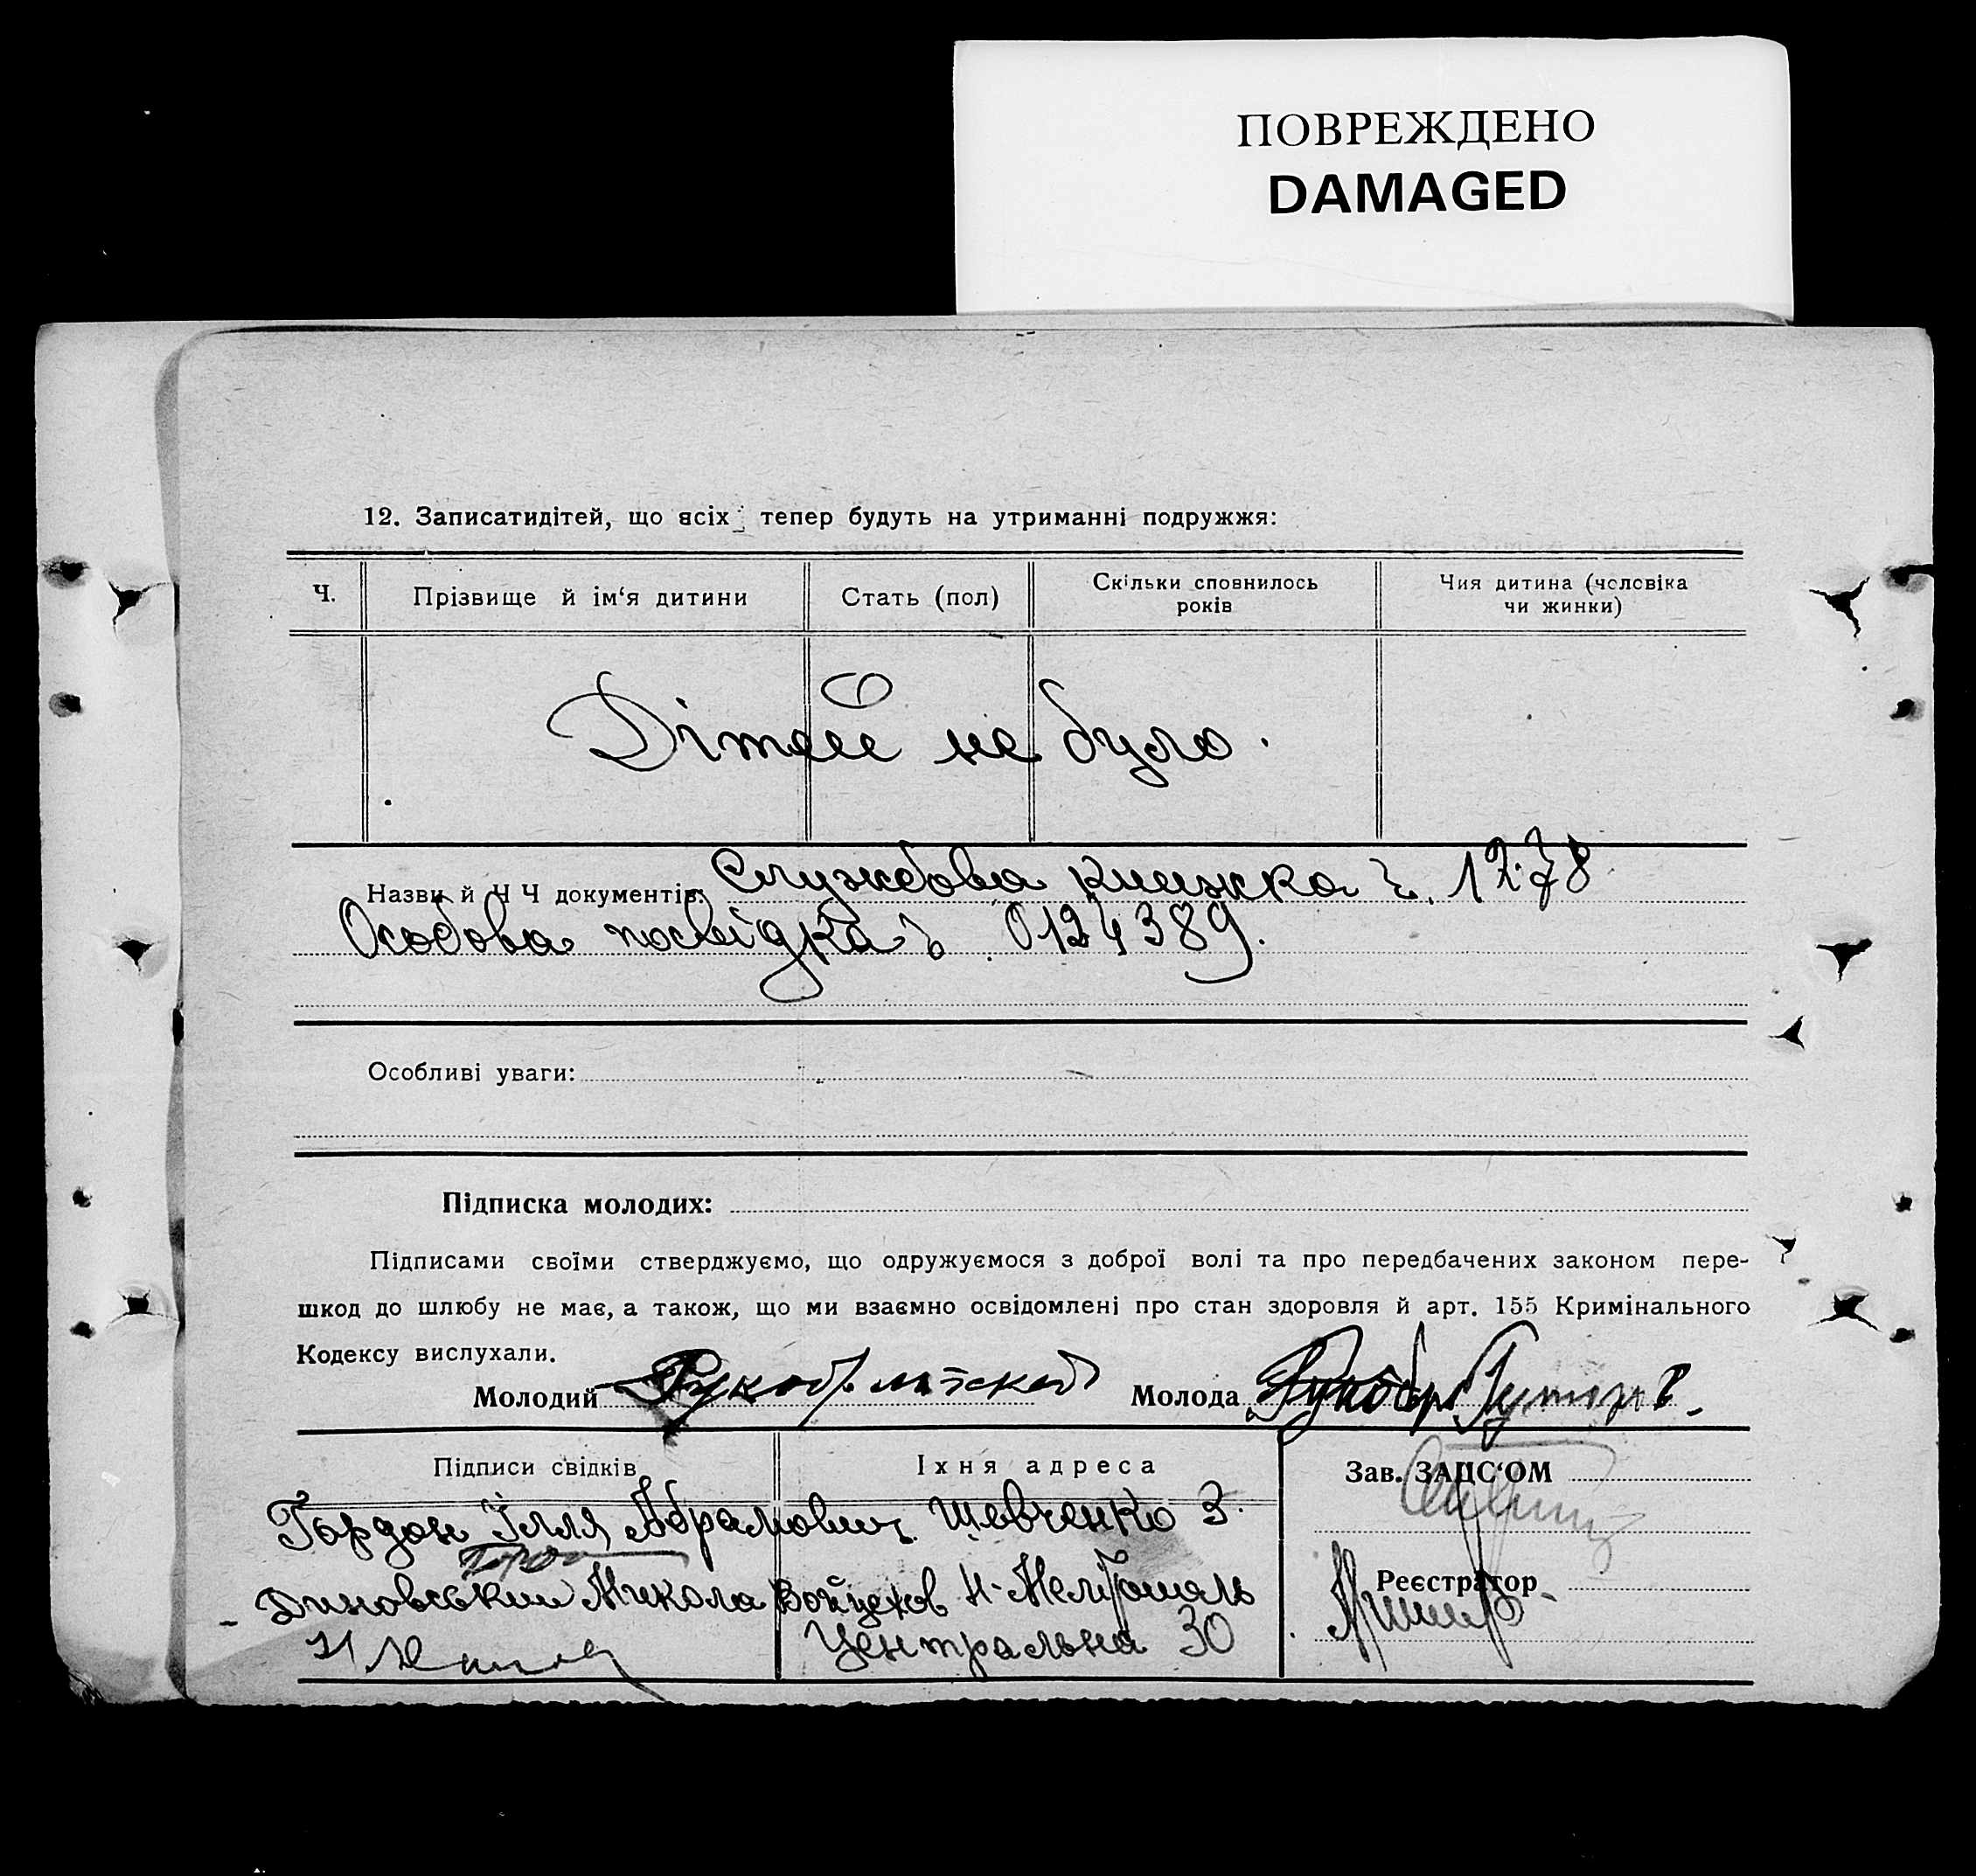 ПОВРЕЖДЕНО
DAMAGED
12. Записатидітей, що всіх тепер будуть на утриманні подружжя:
Ч.
Прізвище й ім‘я дитини
Стать (пол)
Скільки сповнилось
років
Чия дитина (чоловіка
чи жинки)
Дітей не було.
Назви й Ч Ч документів: Службова книжка ч. 1278
Особова посвідка ч 0124389.
Особливі уваги:
Підписка молодих:
Підписами своїми стверджуємо, що одружуємося з доброї волі та про передбачених законом пере-
шкод до шлюбу не має, а також, що ми взаємно освідомлені про стан здоровля й арт. 155 Кримінального
Кодексу вислухали.
Молодий
Молода
Підписи свідків
Їхня адреса
Зав. ЗАДС‘ОМ
Гордон Ілля Абрамович Шевченко 3.
Микола Войцехов
Реєстратор
Центральна 30